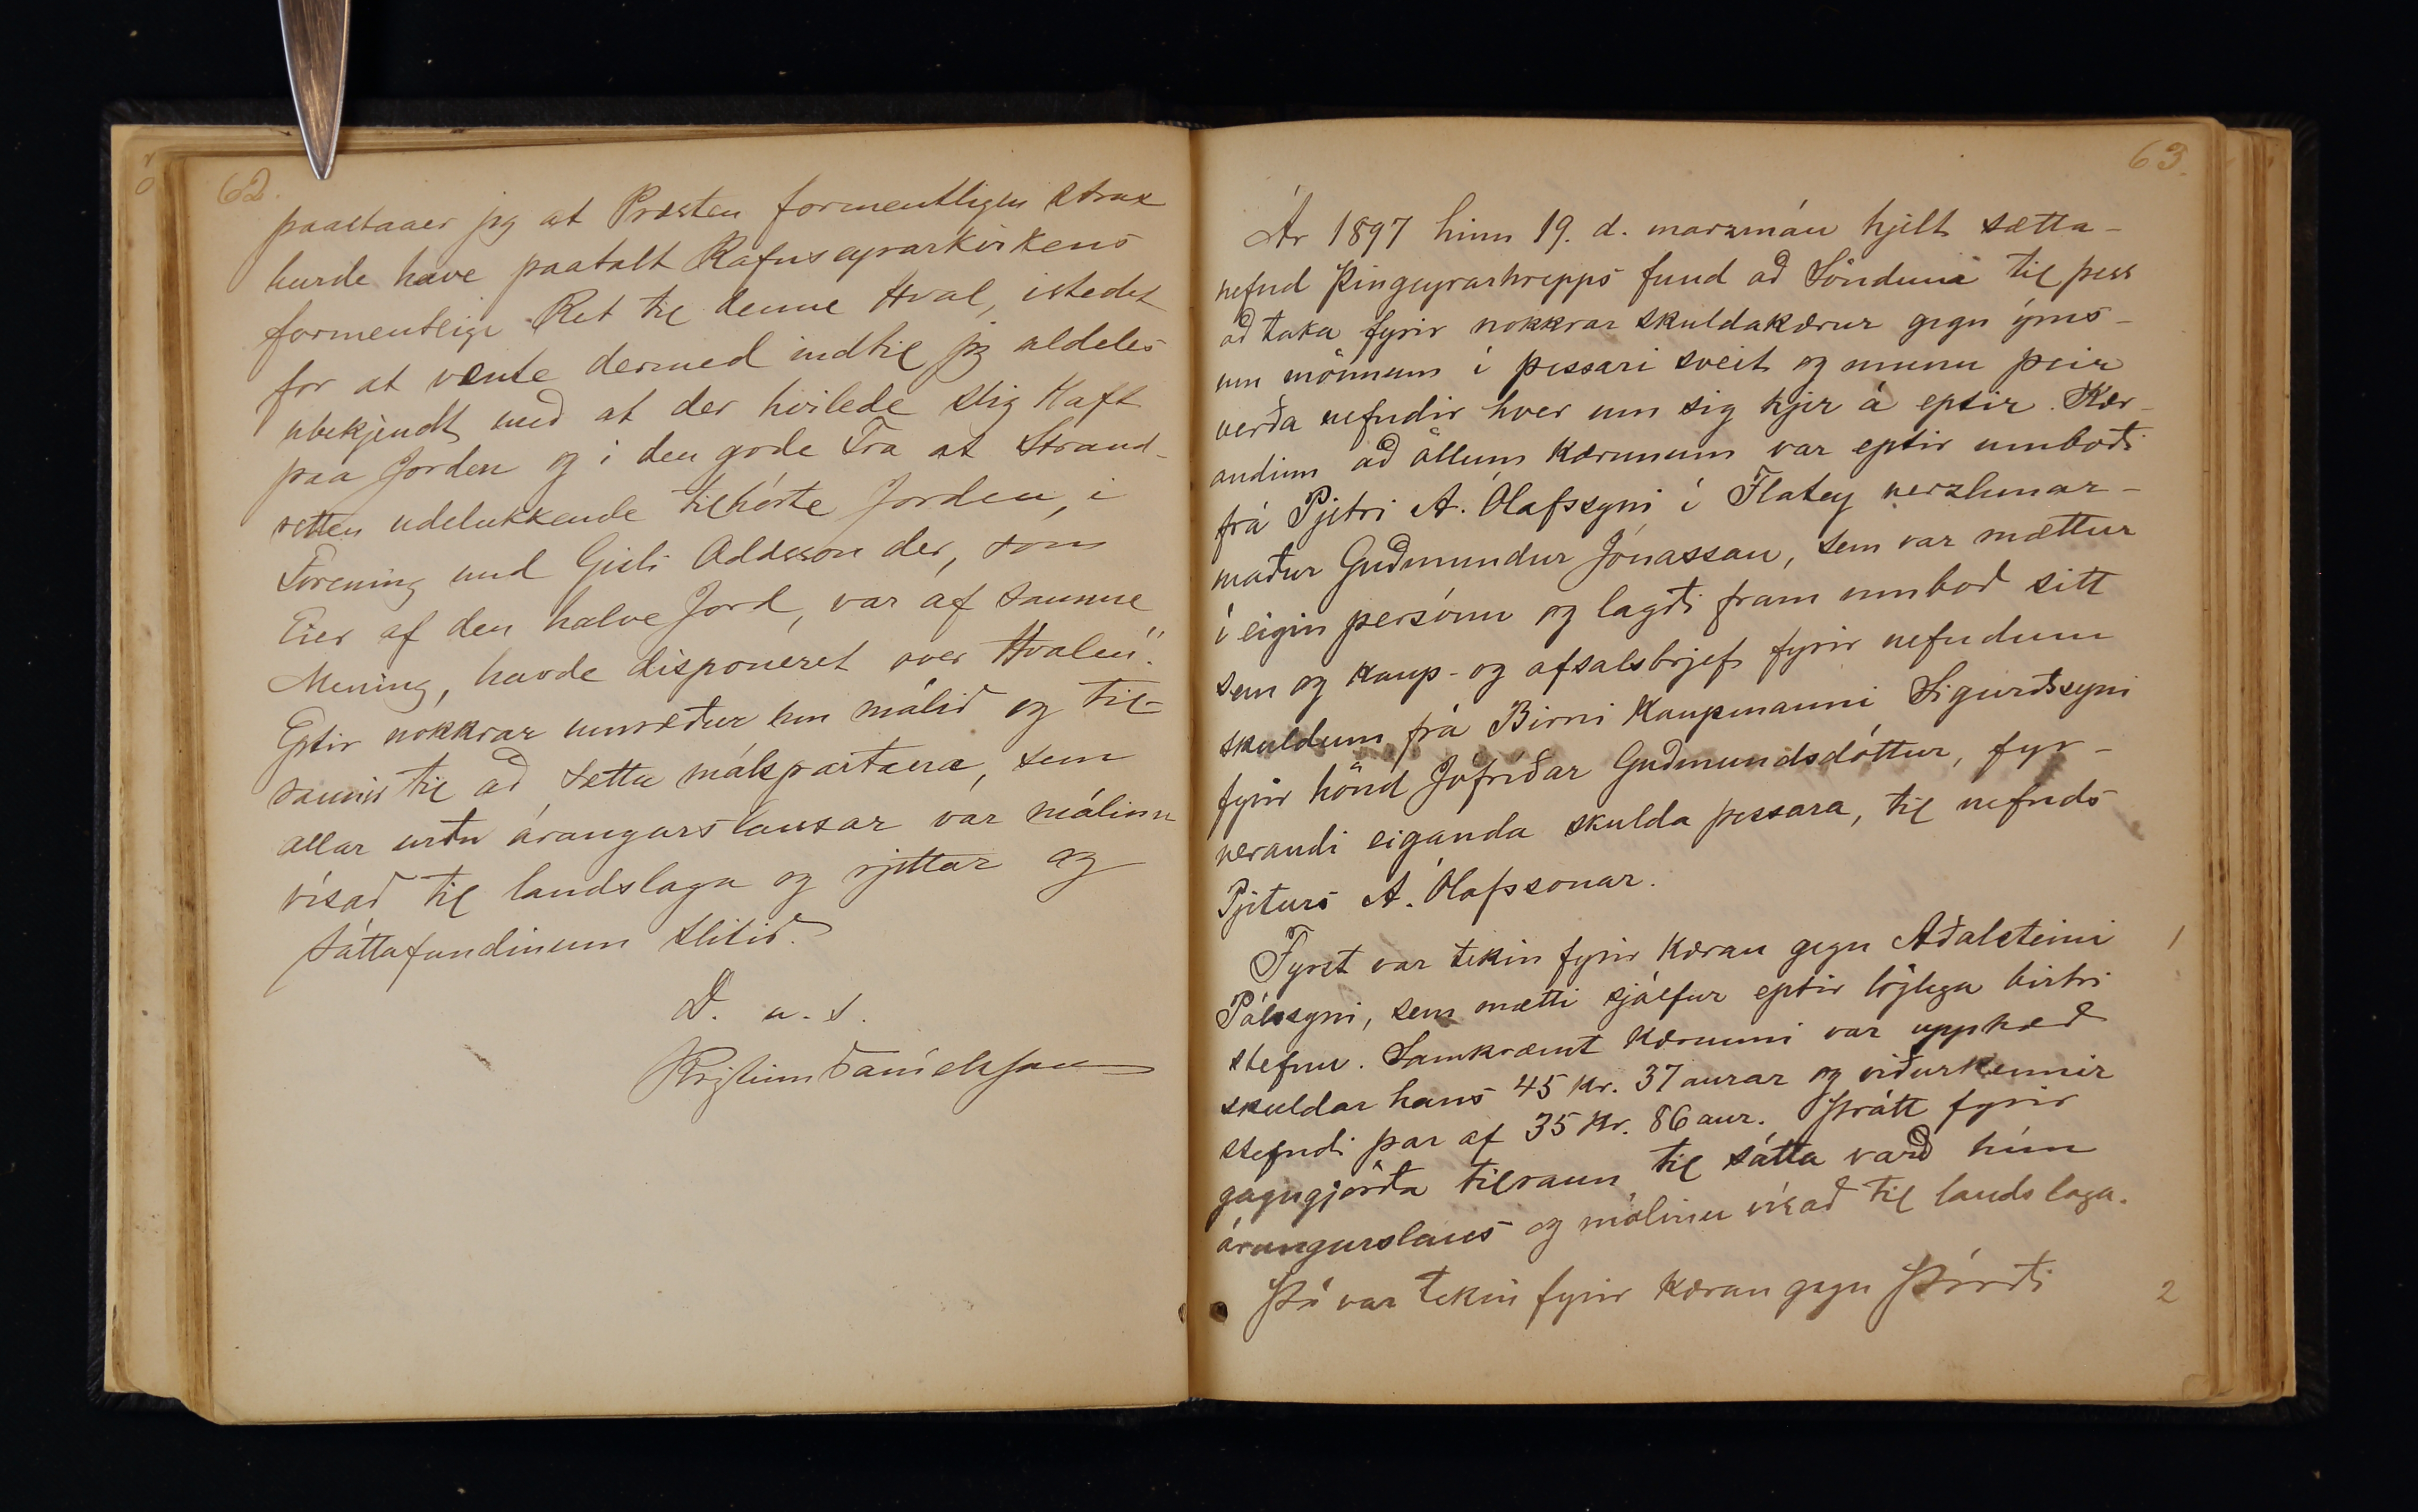 62.
paastaaer jeg at Præsten formentligen strax
burde have paatalt Rafnseyrarkirkens
formentlige Ret til denne Hval, istedet
for at vente dermed indtil jeg aldeles
ubekjendt med at der hvilede slig Haft
paa Jorden og i den gode Tro at Strand-
retten udelukkende tilhörte Jorden, i
Forening med Gisli Oddsson der, som
Eier af den halve Jord, var af samme
Mening, havde disponeret over Hvalen".
Eptir nokkrar umræður um málið og til-
raunir til að sætta málspartana, sem
allar urðu árangurslausar var málinu
vísað til landslaga og rjettar og
sáttafundinum slitið.
D. u. s.
Kristinn Daníelsson
63.
Ár 1897 hinn 19. d. marzmán hjelt sætta-
nefnd Þingeyrarhrepps fund að Söndum til þess
að taka fyrir nokkrar skuldakærur gegn ýms-
um mönnum í þessari sveit og munu þeir
verða nefndir hver um sig hjer á eptir. Kær-
andinn að öllum kærunum var eptir umboði
frá Pjetri A. Ólafssyni í Flatey verzlunar-
maður Guðmundur Jónasson, sem var mættur
í eigin persónu og lagði fram umboð sitt
sem og kaup- og afsalsbrjef fyrir nefndum
skuldum frá Birni kaupmanni Sigurðssyni
fyrir hönd Jófríðar Guðmundsdóttur, fyr-
verandi eiganda skulda þessara, til nefnds
Pjeturs A. Ólafssonar.
Fyrst var tekin fyrir kæran gegn Aðalsteini 1
Pálssyni, sem mætti sjálfur eptir löglega birtri
stefnu. Samkvæmt kærunni var upphæð
skuldar hans 45 kr. 37 aurar og viðurkennir
stefndi þar af 35 kr. 86 aur. Þrátt fyrir
gagngjörða tilraun til sátta varð hún
árangurslaus og málinu vísað til landslaga.
Þá var tekin fyrir kæran gegn Þórði 2